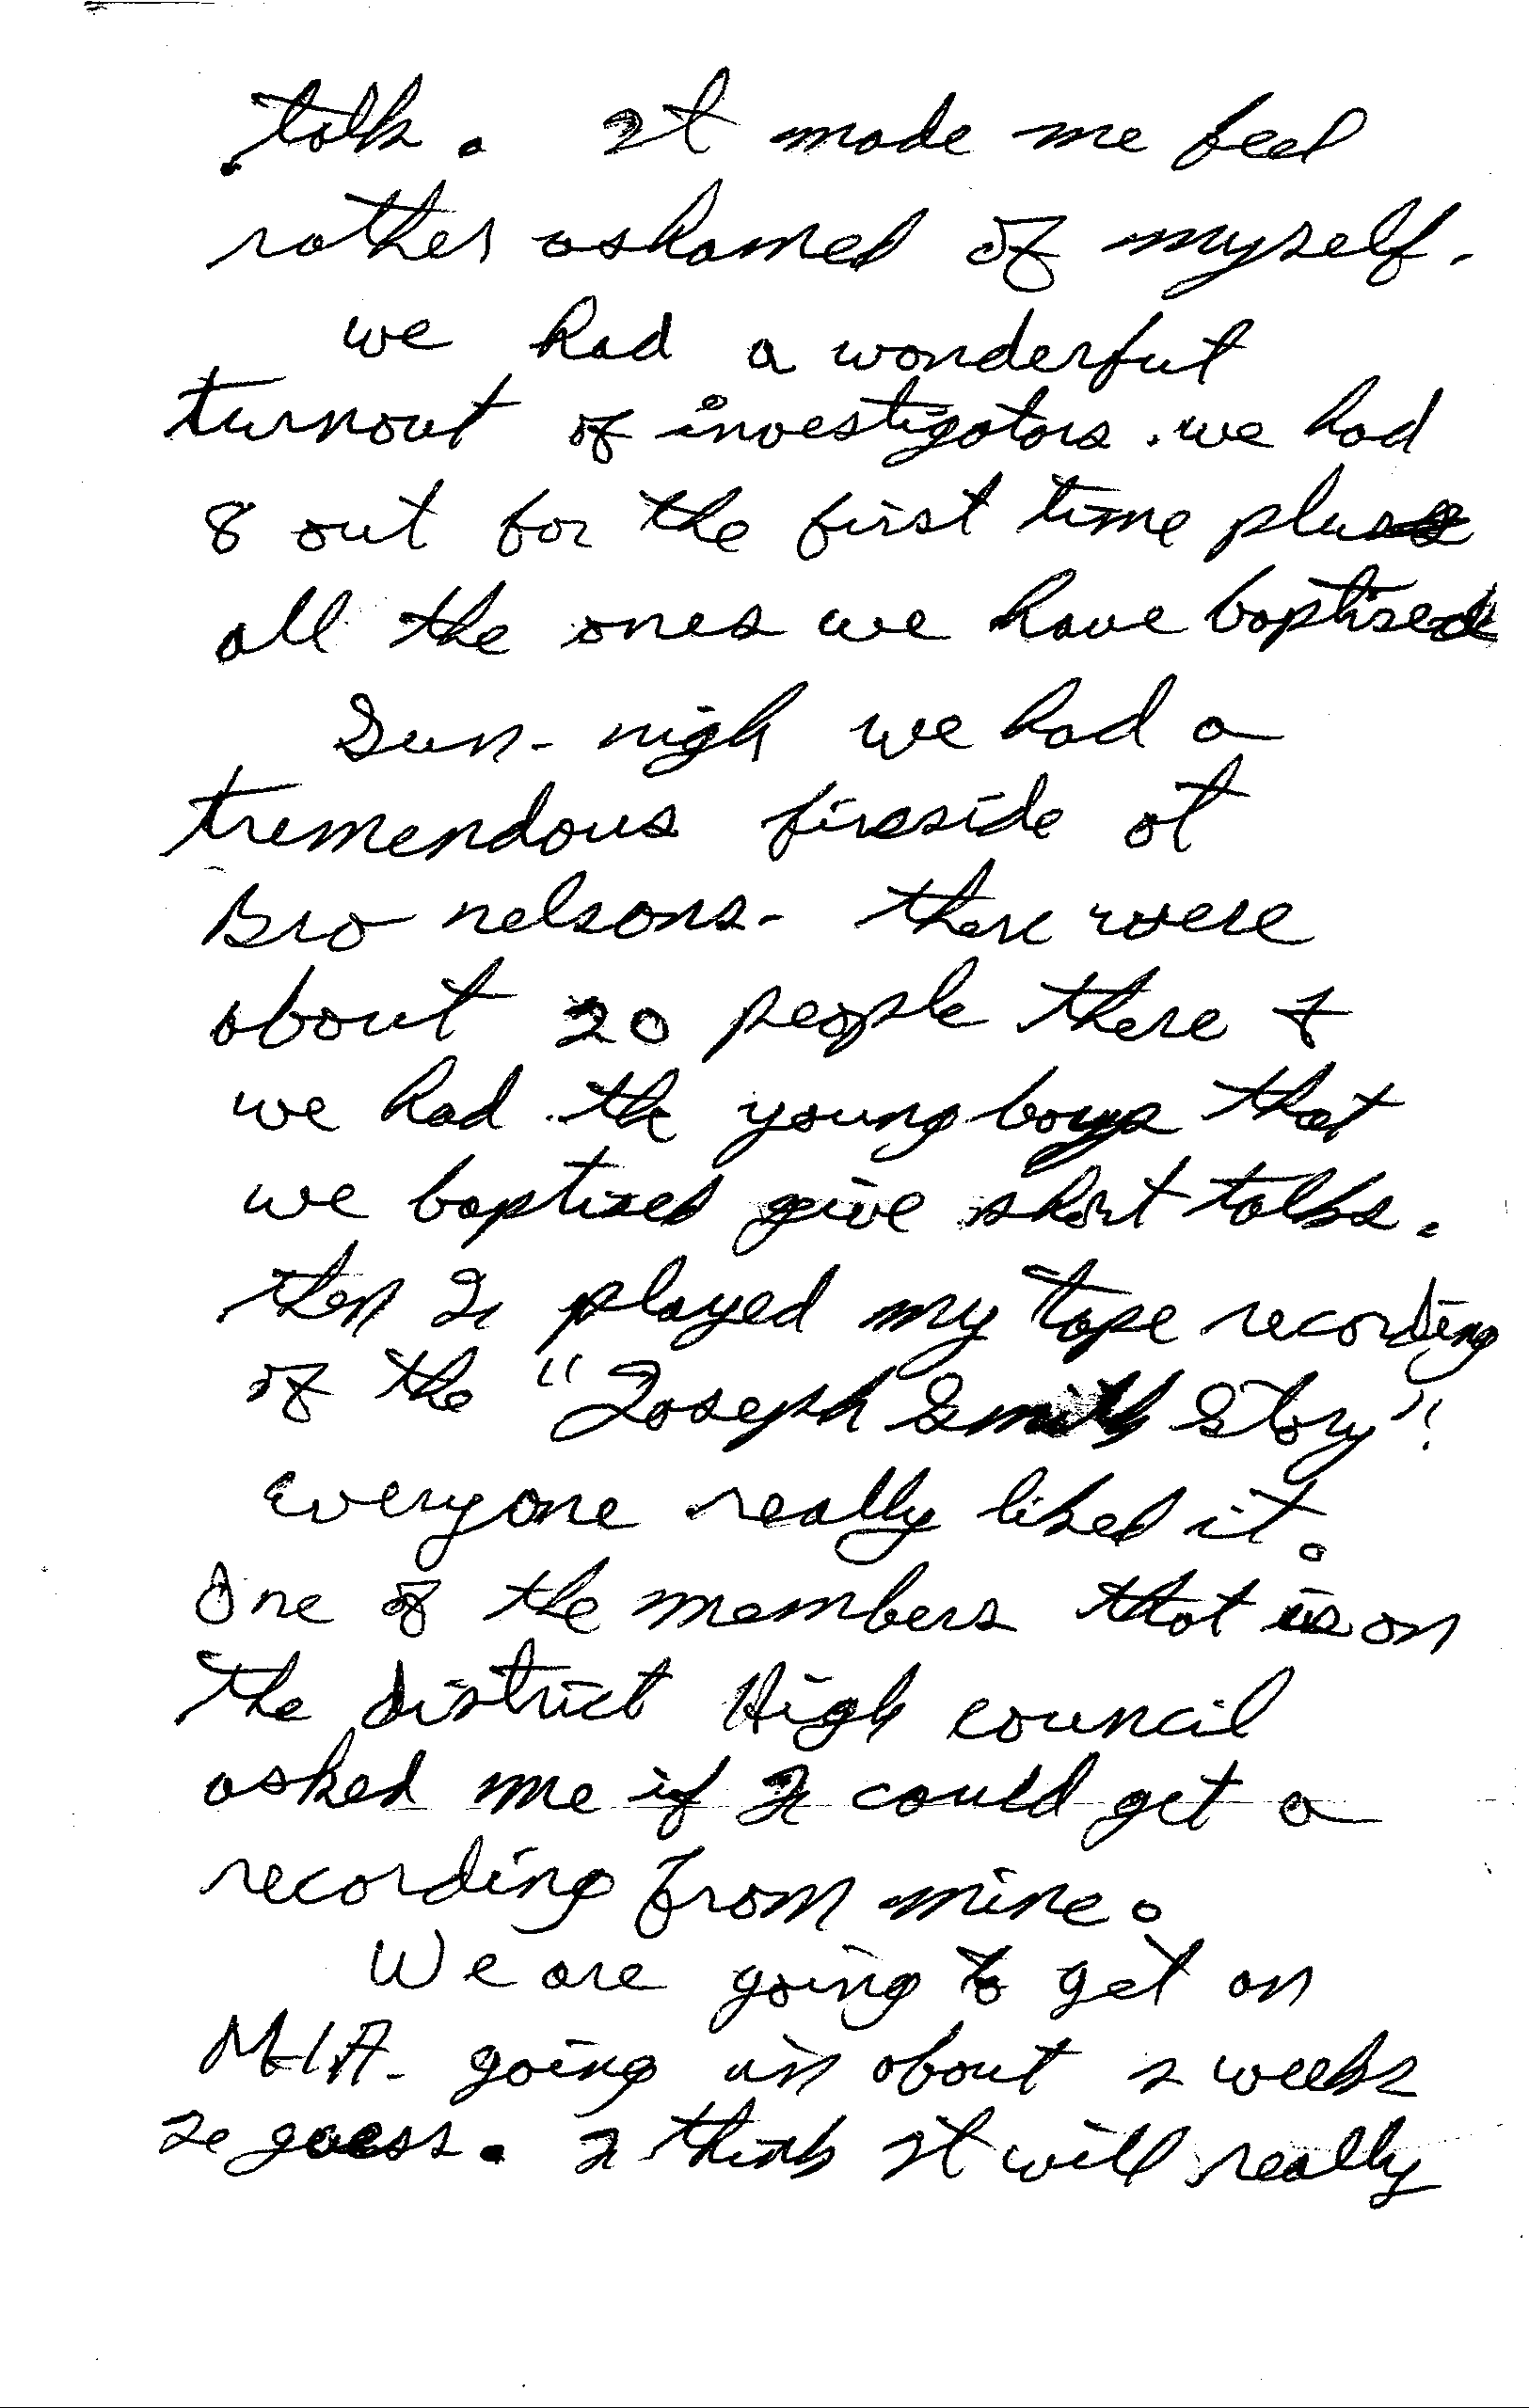 talk. It made me feel
rather ashamed of myself.
we had a wonderful
turnout of investigators. we had
8 out for the first time plus
all the ones we have baptised
Sun- nigh we had a
tremendous fireside at
Bro nelsons- there were
about 20 people there &
we had the young boys that
we baptized give short talks.
then I played my tape recording
of the "Joseph Smith Story".
Everyone really liked it.
One of the members that is on
the district High council
asked me if I could get a
recording from mine.
We are going to get an
MIA- going in about 2 weeks
I guess. I think it will really